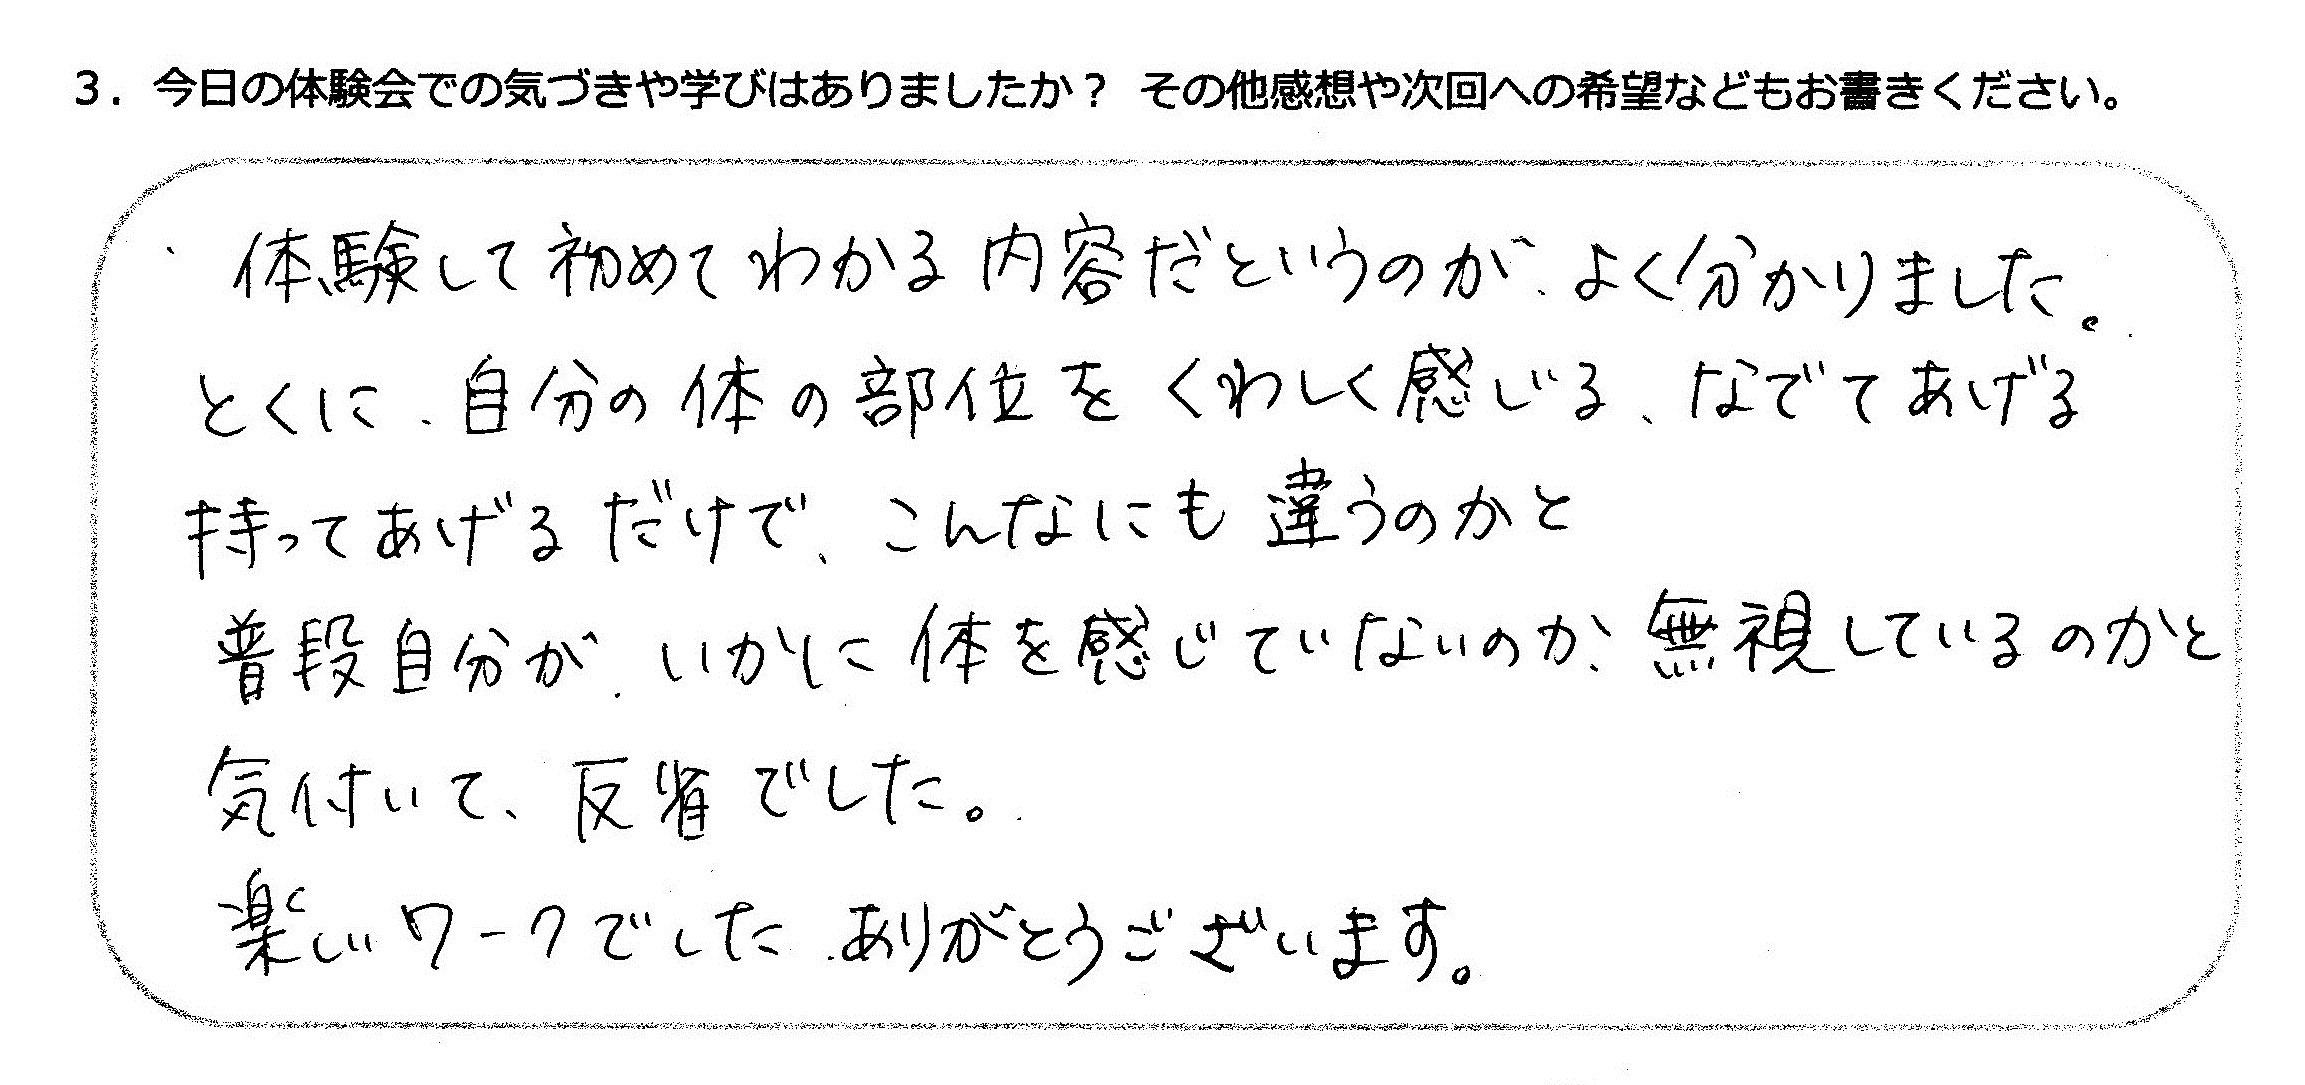 3. 今日の体験会での気づきや学びはありましたか？ その他感想や次回への希望などもお書きください。
体験して初めてわかる内容だというのが、よく分かりました。
とくに、自分の体の部位をくわしく感じる、なでてあげる
持ってあげるだけで、こんなにも違うのかと
普段自分が、いかに体を感じていないのか、無視しているのかと
気付いて、反省でした。
楽しいワークでした、ありがとうございます。